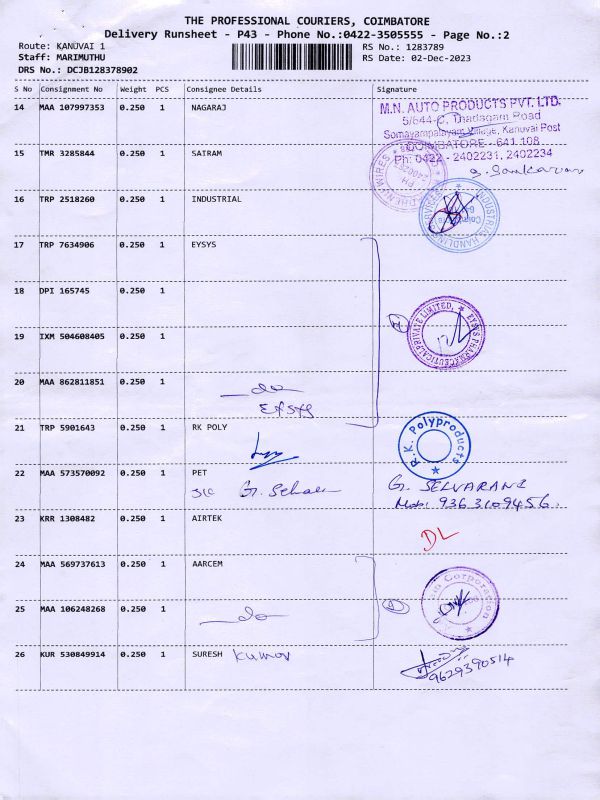 THE PROFESSIONAL COURIERS, COIMBATORE
Delivery Runsheet - P43 - Phone No.:0422-3505555 - Page No.:2
Route: KANUVAI 1
RS No.: 1283789
Staff: MARIMUTHU
RS Date: 02-Dec-2023
DRS No.: DCJB128378902
S No Consignment No Weight PCS Consignee Details Signature
14 MAA 107997353 0.250 1 NAGARAJ
M.N. AUTO PRODUCTS PVT. LTD.
5/644-C, Thadagam Road
Somayampalayam Village, Kanuvai Post
COIMBATORE - 641 108
15 TMR 3285844 0.250 1 SAIRAM
Ph: 0422 - 2402231, 2402234
S. Sankaran
16 TRP 2518260 0.250 1 INDUSTRIAL
INDUSTRIAL HANDLING
17 TRP 7634906 0.250 1 EYSYS
18 DPI 165745 0.250 1
EYSYS PHARMACEUTICAL PRIVATE LIMITED
19 IXM 504608405 0.250 1
20 MAA 862811851 0.250 1
do
EYSYS
21 TRP 5901643 0.250 1 RK POLY
R.K. Polyproducts
22 MAA 573570092 0.250 1 PET
G. SELVARANI
Mobi 9363109456.
23 KRR 1308482 0.250 1 AIRTEK
DL
24 MAA 569737613 0.250 1 AARCEM
Corporation
25 MAA 106248268 0.250 1
do
26 KUR 530849914 0.250 1 SURESH Kumar
9629390514